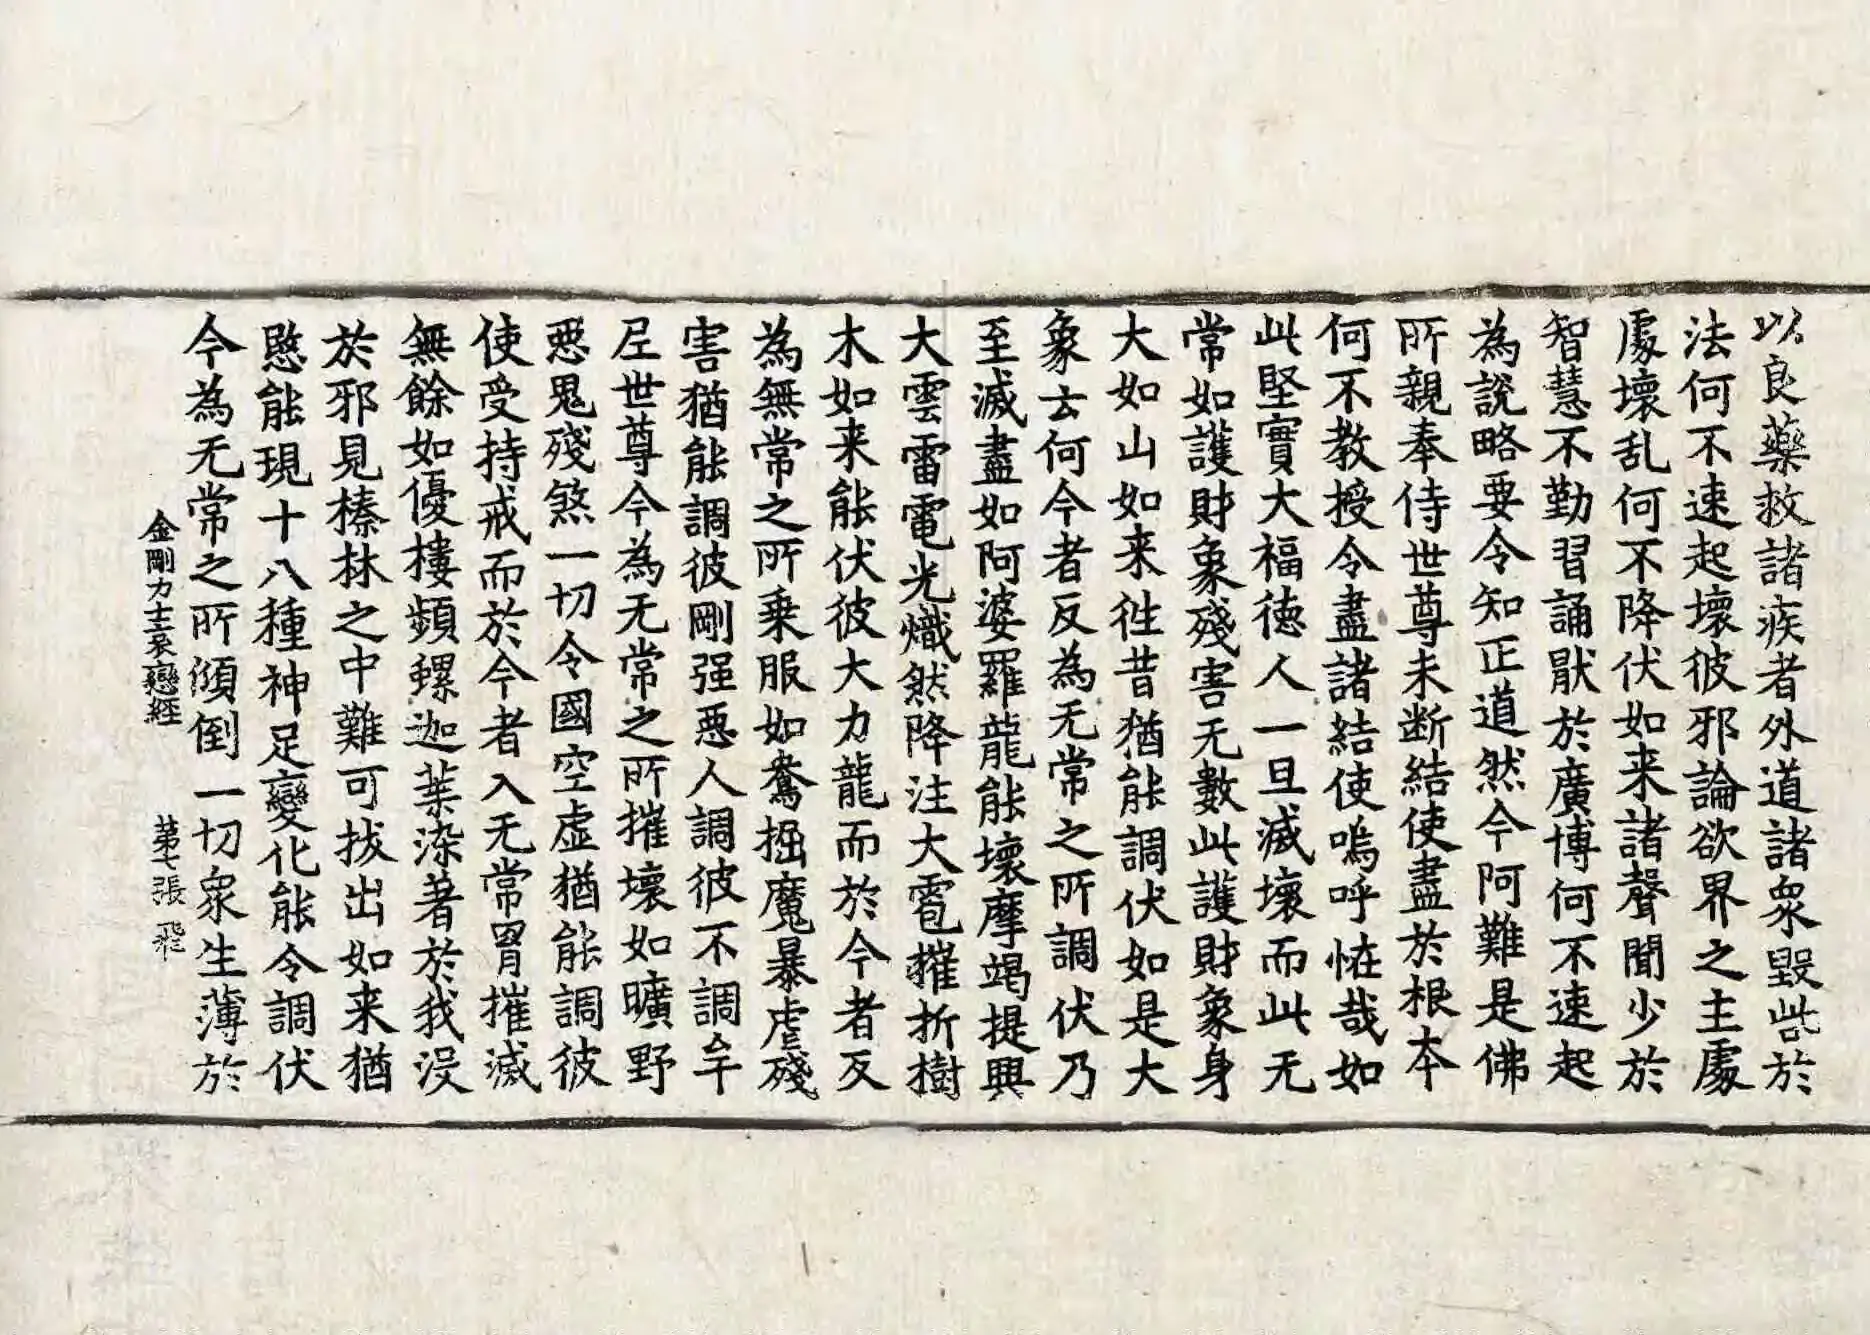 以良藥救諸疾者外道諸衆毀呰於
法何不速起壞彼邪論欲界之主處
處壞乱何不降伏如来諸聲聞少於
智慧不勤習誦猒於廣博何不速起
為說略要令知正道然今阿難是佛
所親奉侍世尊未断結使盡於根本
何不教授令盡諸結使嗚呼恠哉如
此堅實大福德人一旦滅壞而此无
常如護財象殘害无數此護財象身
大如山如来徃昔猶能調伏如是大
象去何今者反為无常之所調伏乃
至滅盡如阿婆羅龍能壞摩竭提興
大雲雷電光熾然降注大雹摧折樹
木如来能伏彼大力龍而於今者反
為無常之所乗服如鴦掘魔暴虐殘
害猶能調彼剛强惡人調彼不調牟
尼世尊今為无常之所摧壞如曠野
惡鬼殘煞一切令國空虛猶能調彼
使受持戒而於今者入无常胃摧滅
無餘如優樓頻螺迦葉染著於我没
於邪見榛林之中難可拔出如来猶
愍能現十八種神足變化能令調伏
今為无常之所傾倒一切衆生薄於
金剛力士哀戀經 第七張 飛